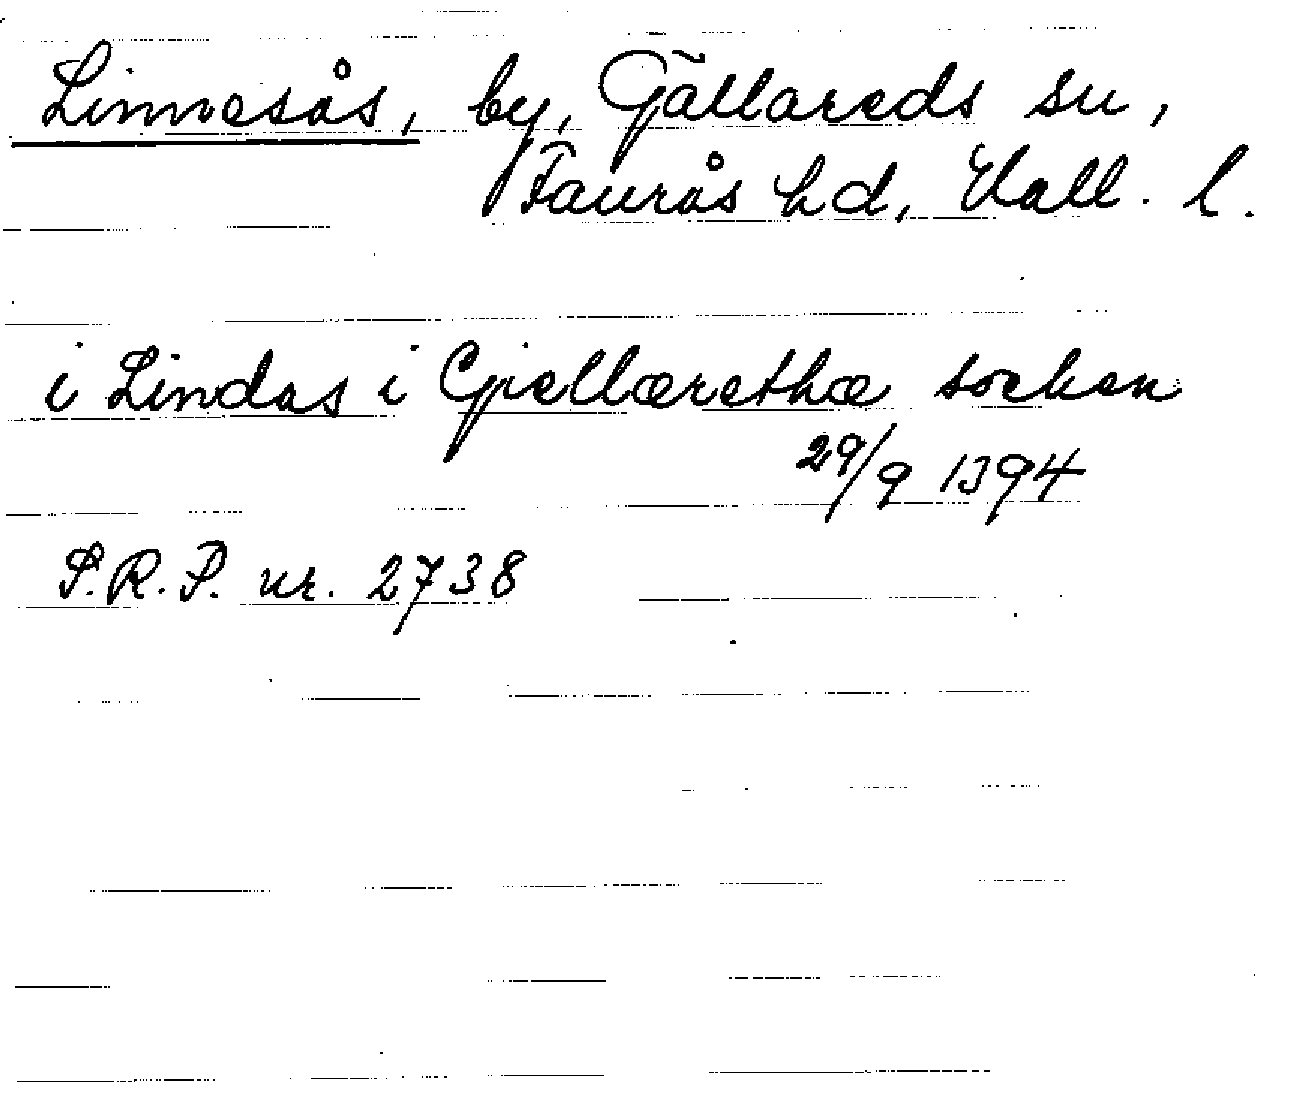 Linnesås, by, Gällareds sn,
Faurås hd, Hall. l.
i Lindas i Gjellærethæ socken
29/9 1394
S.R.P. nr. 2738